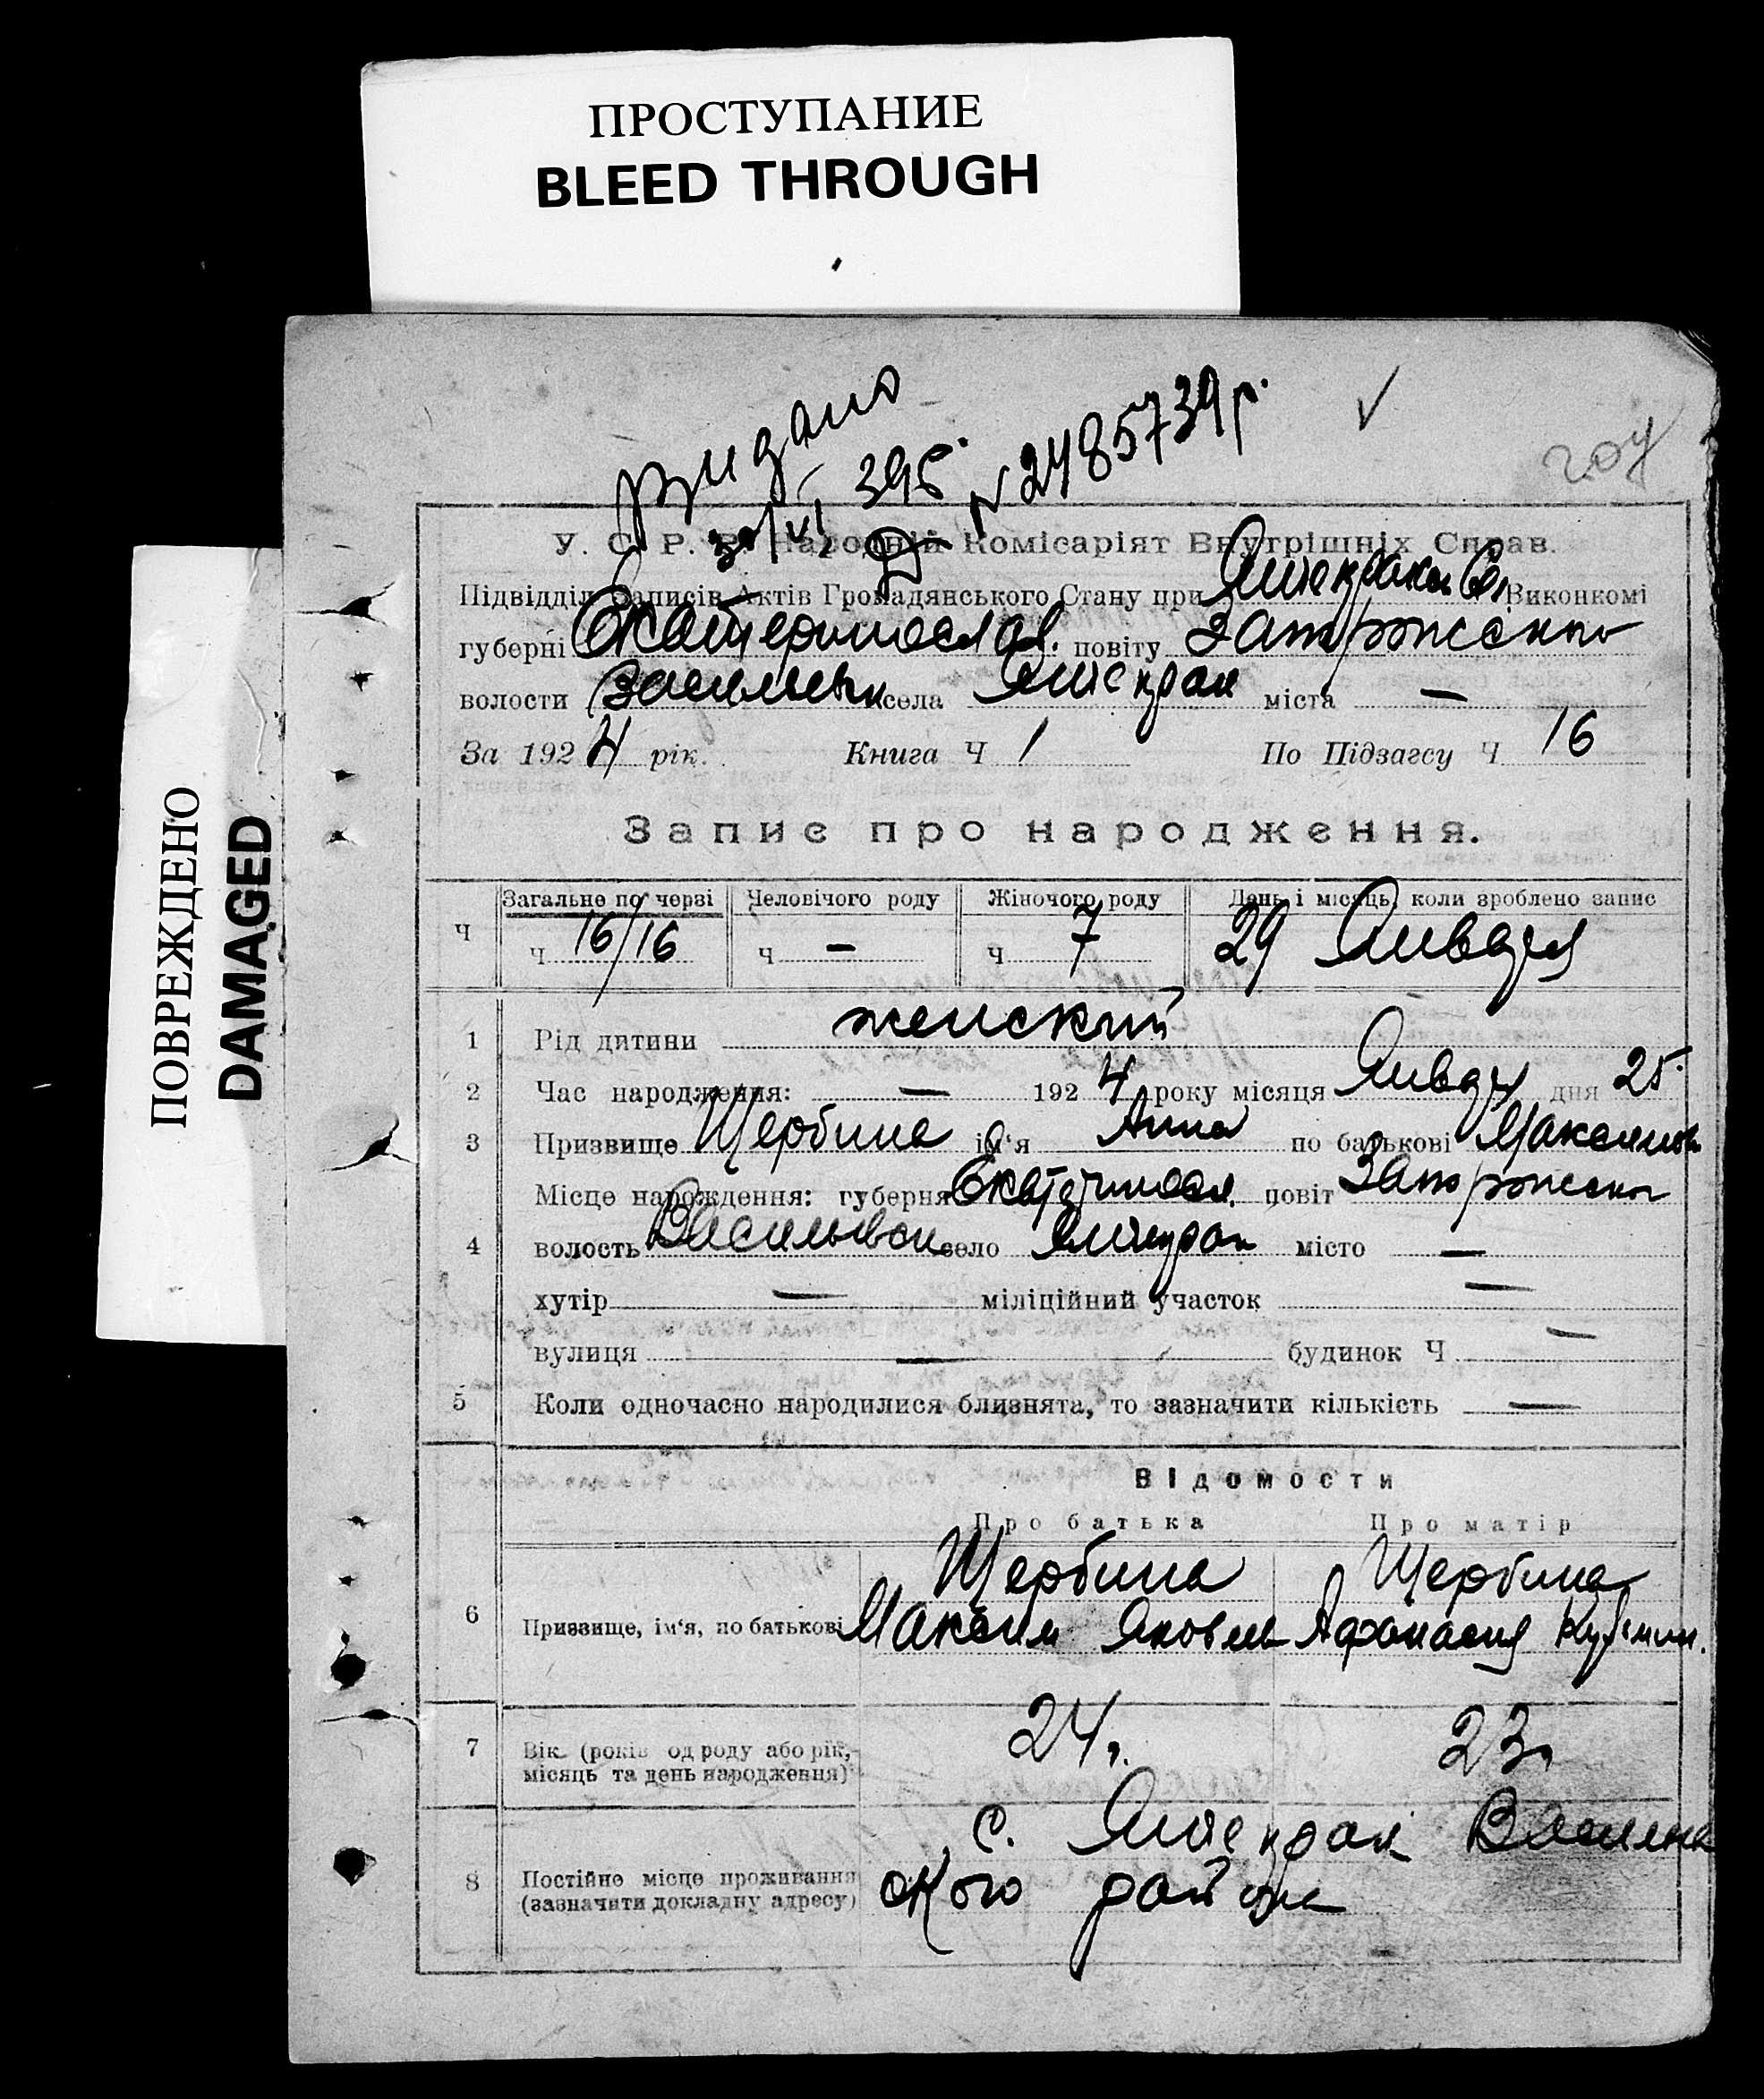 ПРОСТУПАНИЕ
BLEED THROUGH
ПОВРЕЖДЕНО
DAMAGED
Видано
30/VI 39
N 2485739р.
У. С. Р. Р. Народній Комісаріят Внутрішніх Справ.
Підвідділ Записів Актів Громадянського Стану при Виконкомі
губерні Екатеринослав. повіту Запорожского
волости села міста —
За 1924 рік. Книга Ч 1 По Підзагсу Ч 16
Запис про народження.
Ч Загальне по черзі Человічого роду Жіночого роду День і місяць, коли зроблено запис
Ч 16/16 Ч — Ч 7 29 Января
1 Рід дитини женский
2 Час народження: — 1924 року місяця Января дня 25
3 Призвище Щербина ім'я Анна по батькові Максимов
Місце нарождення: губерня Екатериносл. повіт Запорожский
4 волость Васильевск село місто —
хутір — міліційний участок —
вулиця — будинок Ч —
5 Коли одночасно народилися близнята, то зазначити кількість —
Відомости
Про батька Про матір
Щербина Щербина
6 Призвище, ім'я, по батькові Максим Яковлев Афанасия Кузьмин.
7 Вік (років од роду або рік, місяць та день народження) 24 г. 23 г.
с. Василев
8 Постійне місце проживання (зазначити докладну адресу) ского района